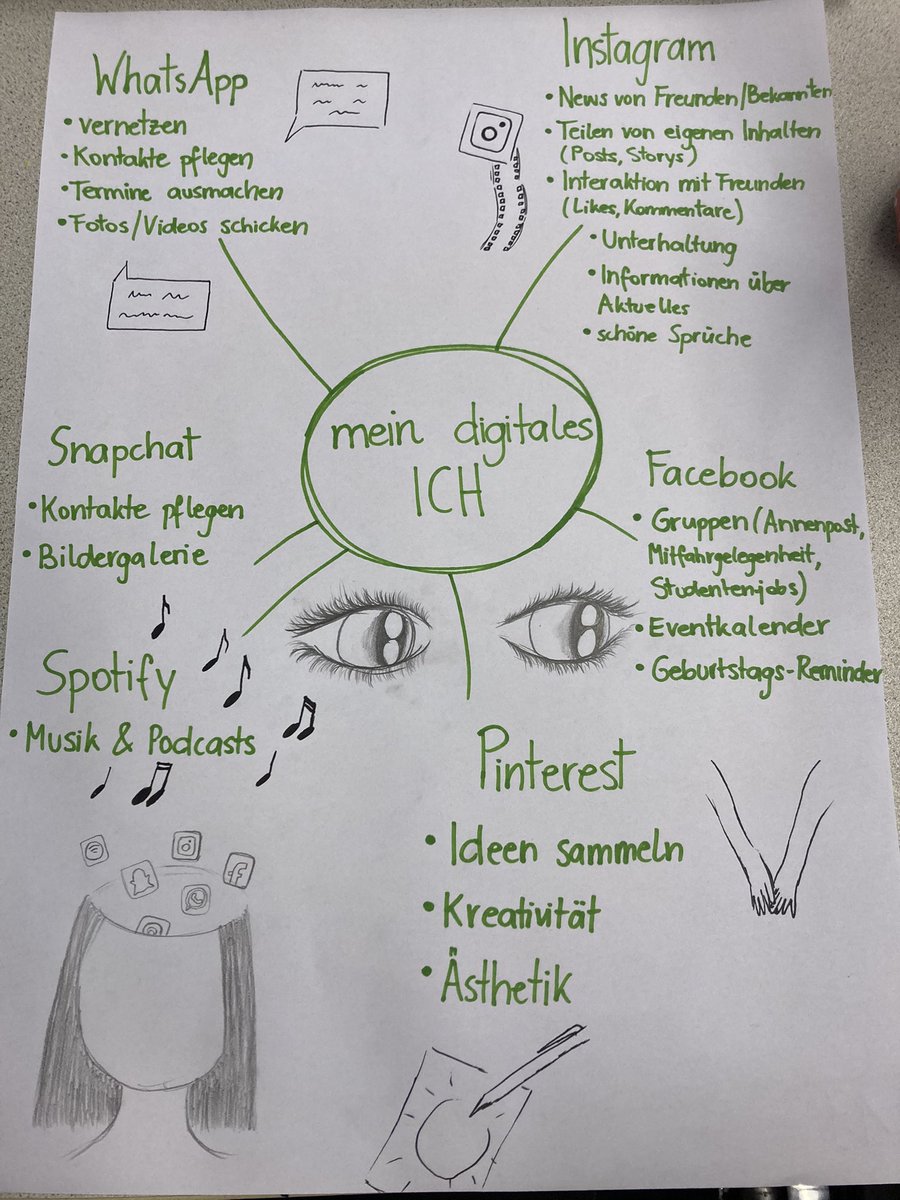 WhatsApp
• vernetzen
• Kontakte pflegen
• Termine ausmachen
• Fotos/Videos schicken
Instagram
• News von Freunden/Bekannten
• Teilen von eigenen Inhalten
(Posts, Storys)
• Interaktion mit Freunden
(Likes, Kommentare)
• Unterhaltung
• Informationen über
Aktuelles
• schöne Sprüche
mein digitales
ICH
Snapchat
• Kontakte pflegen
• Bildergalerie
Facebook
• Gruppen (Annenpost,
Mitfahrgelegenheit,
Studentenjobs)
• Eventkalender
• Geburtstags-Reminder
Spotify
• Musik & Podcasts
Pinterest
• Ideen sammeln
• Kreativität
• Ästhetik